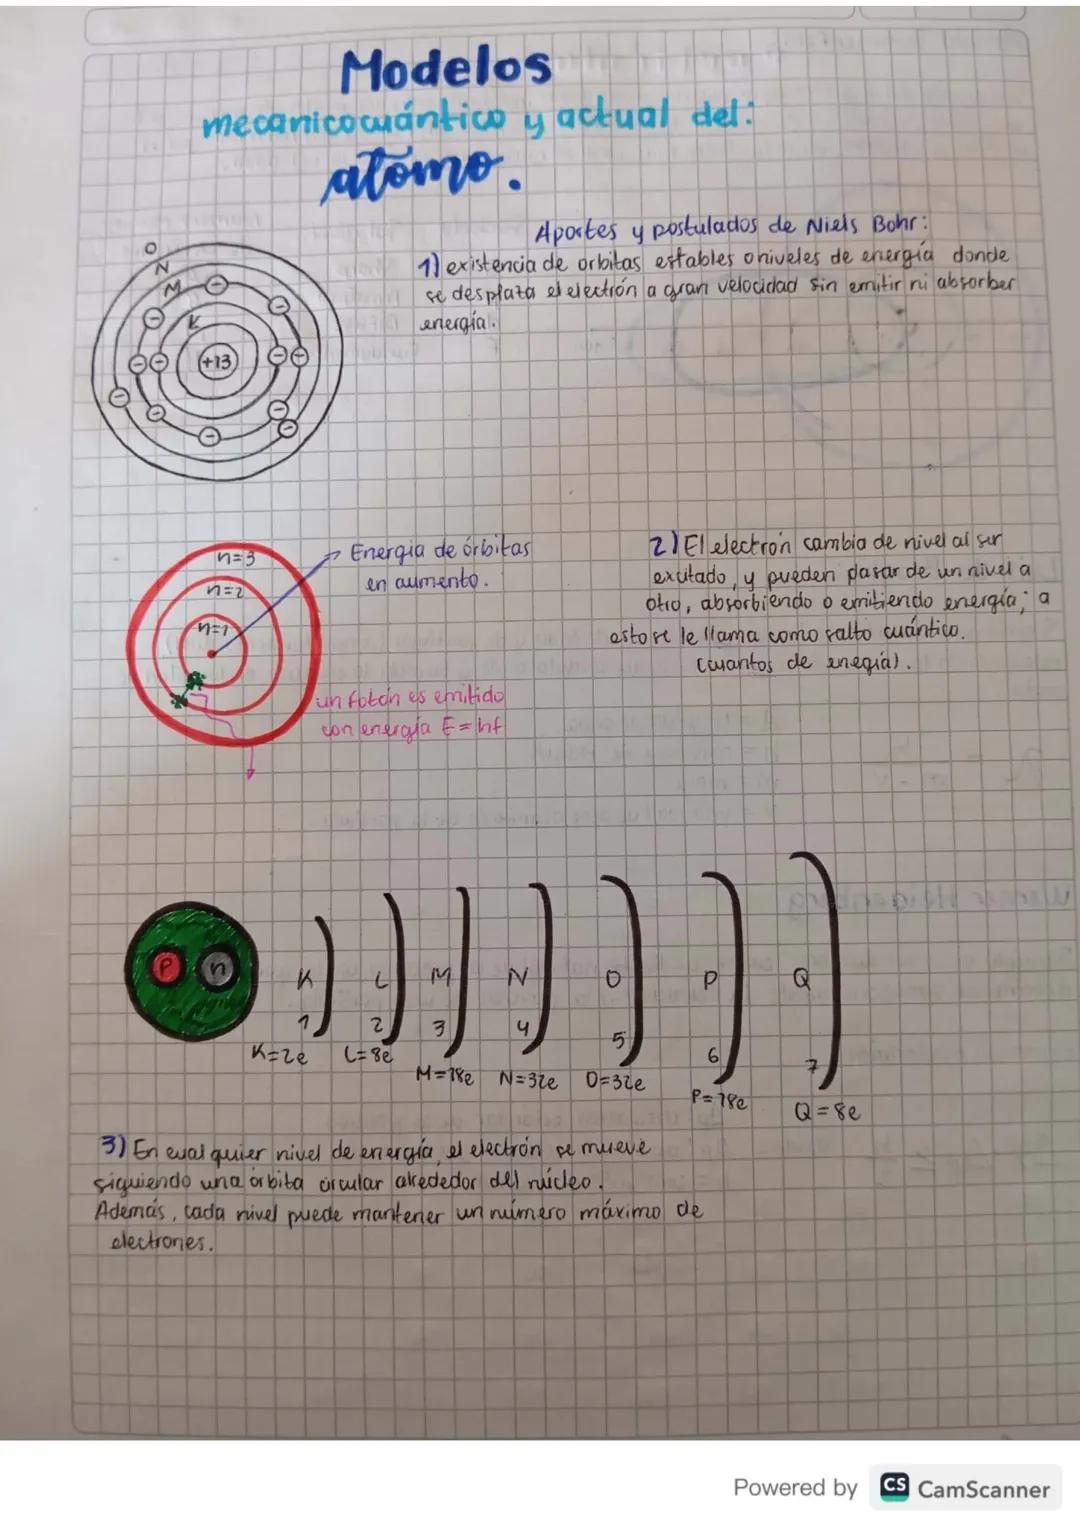 Modelos
mecanicocuántico y actual del:
atomo.
Aportes y postulados de Niels Bohr:
1) existencia de orbitas estables o niveles de energía donde
se desplaza el electrón a gran velocidad sin emitir ni absorber
energía.
O
N
M
K
+13
n=3
n=2
n=1
Energia de órbitas
en aumento.
un fotón es emitido
con energía E=hf
2) El electrón cambia de nivel al ser
exitado, y pueden pasar de un nivel a
otro, absorbiendo o emitiendo energía; a
esto se le llama como salto cuántico.
(cuantos de enegía).
P n K L M N O P Q
1 2 3 4 5 6 7
K=2e L=8e M=18e N=32e O=32e P=18e Q=8e
3) En cualquier nivel de energía, el electrón se mueve
siguiendo una órbita circular alrededor del núcleo.
Además, cada nivel puede mantener un número máximo de
electrones.
Powered by CS CamScanner